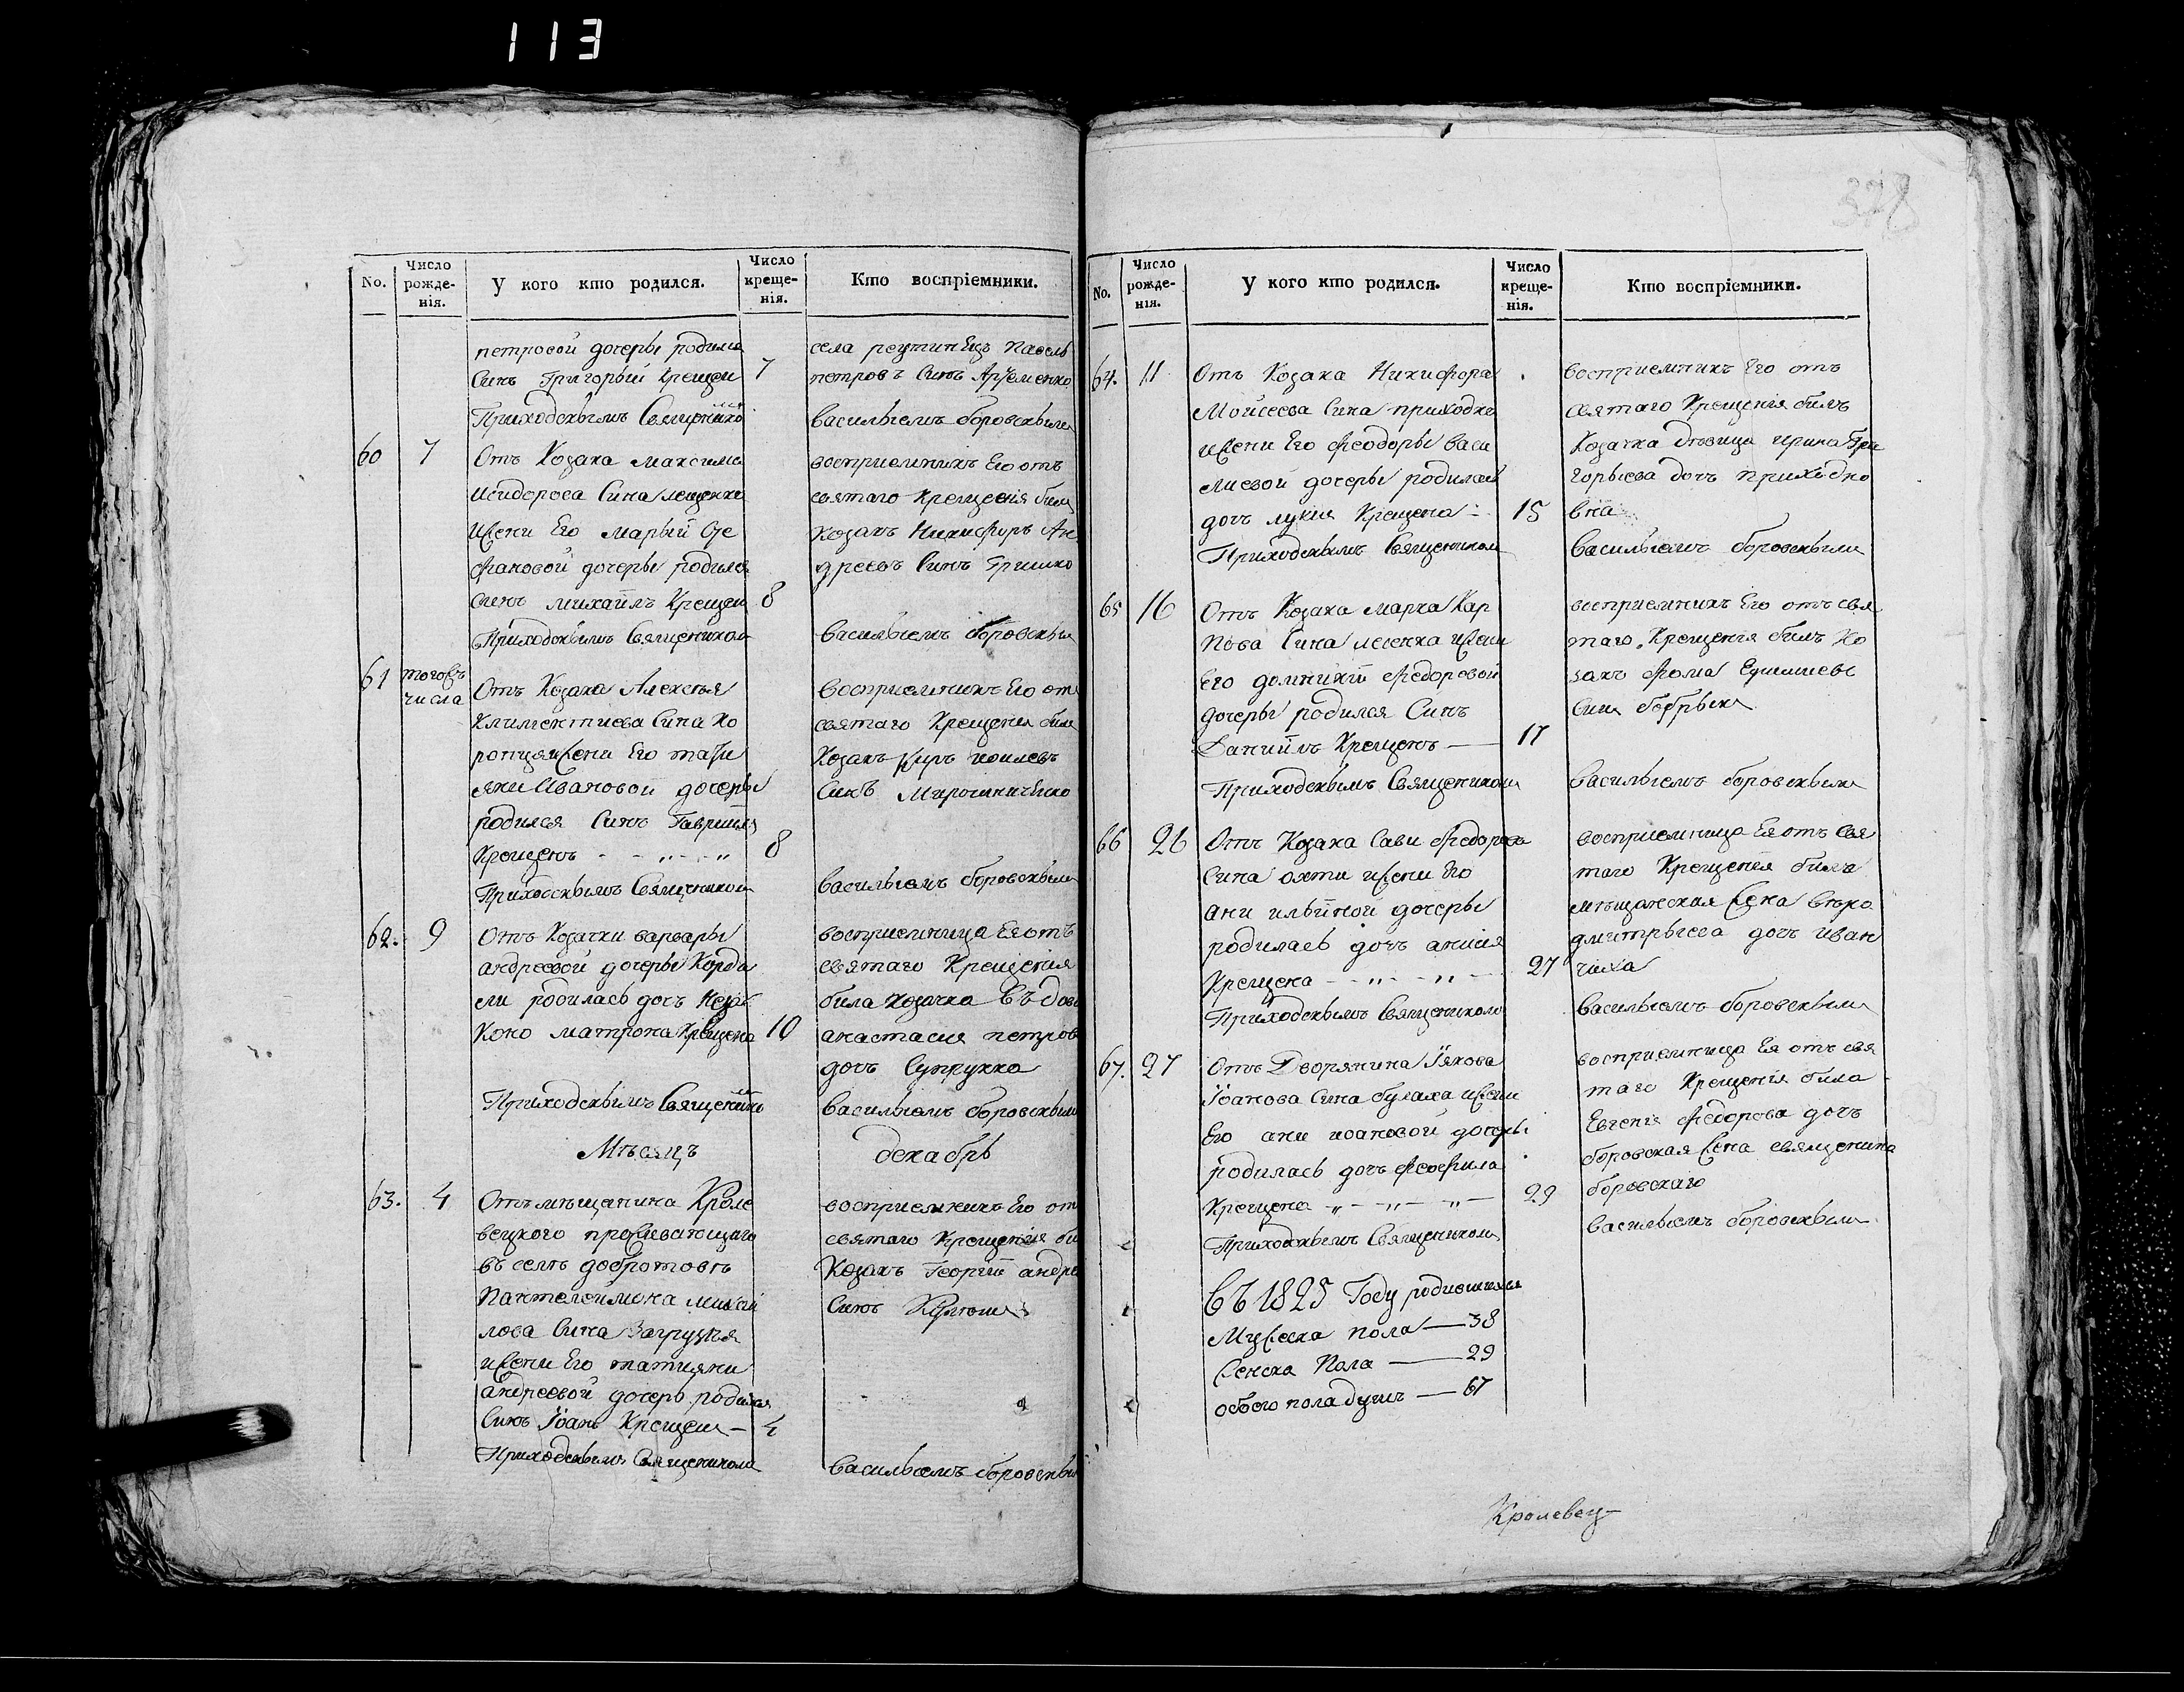 113
No.
Число рожде-нія.
У кого кто родился.
Число креще-нія.
Кто воспріемники.
петровой дочеры родился
Синъ Григорый Крещен
7
Приходскымъ Священико
села реутинецъ Павелъ
петровъ Синъ Артеменко
Васильемъ боровскымъ
60
7
Отъ Козака Максима
Исидорова Сина лещенка
жени Его Марьй Сте
фановой дочеры родился
синъ михайлъ Крещен
8
Приходскымъ Священиком
восприемникъ Его отъ
святаго Крещенія билъ
Козакъ Никифоръ Ан
дреевъ Синъ Гришко
Васильемъ боровскым
61
тогожъ
числа
Отъ Козака Алексея
Климентиева Сина Ко
ропця жени Его тати
яни Ивановой дочеры
родился Синъ Гавриилъ
Крещенъ
8
Приходскымъ Священиком
восприемникъ Его отъ
святаго Крещения билъ
Козакъ Киръ
Синъ Мирошниченко
Васильемъ боровскым
62.
9
Отъ Козачки варвары
андреевой дочеры Корда
ли родилась дочъ незак
коно матрона Крещена
10
Приходскымъ Священико
восприемница Ея отъ
святаго Крещения
била козачка Въдова
анастасия петрова
дочъ Супрунка
Васильемъ боровскым
Мѣсяцъ
декабрь
63.
4
Отъ мѣщанина Кроле
вецкого проживающаго
въ селѣ добротовѣ
Пантелеимона михай
лова Сина Загрудня
жени Его татияни
андреевой дочеры родился
Синъ Iоанъ Крещен
4
Приходскымъ Священиком
восприемникъ Его от
святаго Крещения би
Козакъ Георгий андре
Синъ
Васильемъ боровскым
328
No.
Число рожде-нія.
У кого кто родился.
Число креще-нія.
Кто воспріемники.
64.
11
Отъ Козака Никифора
Мойсеева Сина приходка
жени Его Феодоры васи
лиевой дочеры родилась
дочъ лукия Крещена
15
Приходскымъ Священиком
восприемникъ Его отъ
святаго Крещения билъ
Козачка дѣвица ирина Гри
горыева дочъ приходко
вна
Васильемъ боровскым
65
16
Отъ Козака Марка Кар
пова Сина лесенка жени
Его домникий Федоровой
дочеры родился Синъ
Данийлъ Крещенъ
17
Приходскымъ Священиком
восприемникъ Его отъ свя
таго Крещения билъ Ко
закъ Фома
Синъ
Васильемъ боровскым
66
26
Отъ Козака Сави Федорова
Сина охти жени Его
ани ильйной дочеры
родилась дочъ анисия
Крещена
27
Приходскымъ Священиком
восприемница Ея отъ свя
таго Крещения билъ
мѣщанская Жена вѣра
дмитрыева дочъ Иван
чиха
Васильемъ боровскым
67.
27
Отъ Дворянина Iякова
Iоанова Сина булаха жени
Его ани иоановой дочеры
родилась дочъ Феофила
Крещена
29
Приходскымъ Священиком
восприемница Ея отъ свя
таго Крещения била
Евгения Федорова дочъ
боровская Жена священика
боровскаго
Васильемъ боровскым
Въ 1825 Году родившихся
Мужеска пола — 38
Женска Пола — 29
обоего пола душъ — 67
Кролевец